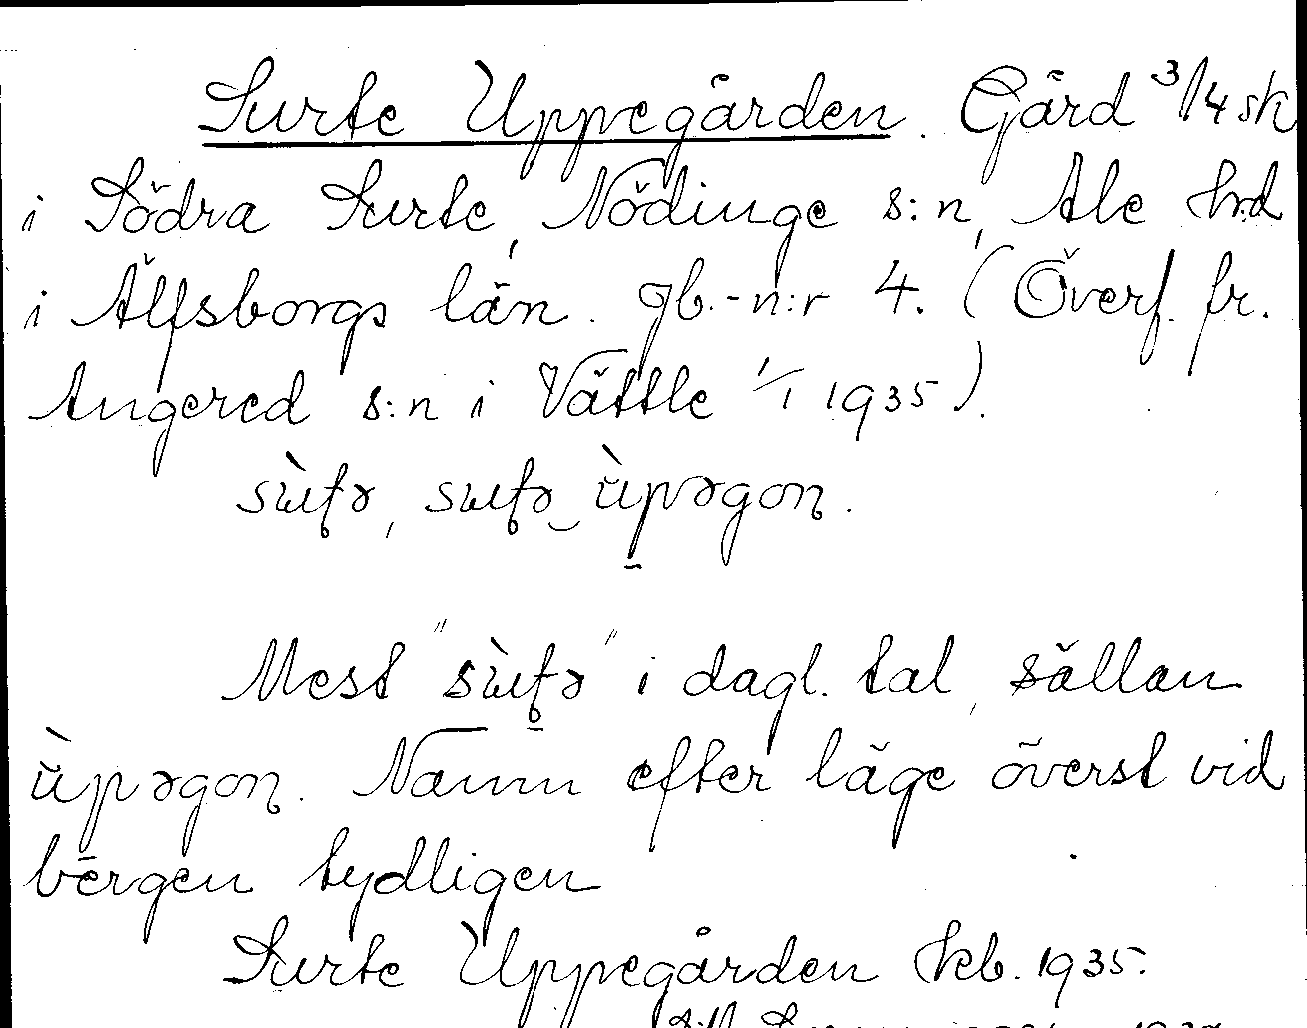 Surte Uppegården. Gård 3/4 sk
i Södra Surte, Nödinge s:n, Ale hd
i Älfsborgs län. gb.-n:r 4. (Överf. fr.
Angered s:n i Vättle 1/1 1935).
sɯ̀tə, sɯtə ɯ̀pəgoɳ.
Mest "sɯ̀tə" i dagl. tal, sällan
ɯ̀pəgoɳ. Namn efter läge överst vid
bergen tydligen
Surte Uppegården Jkb. 1935.